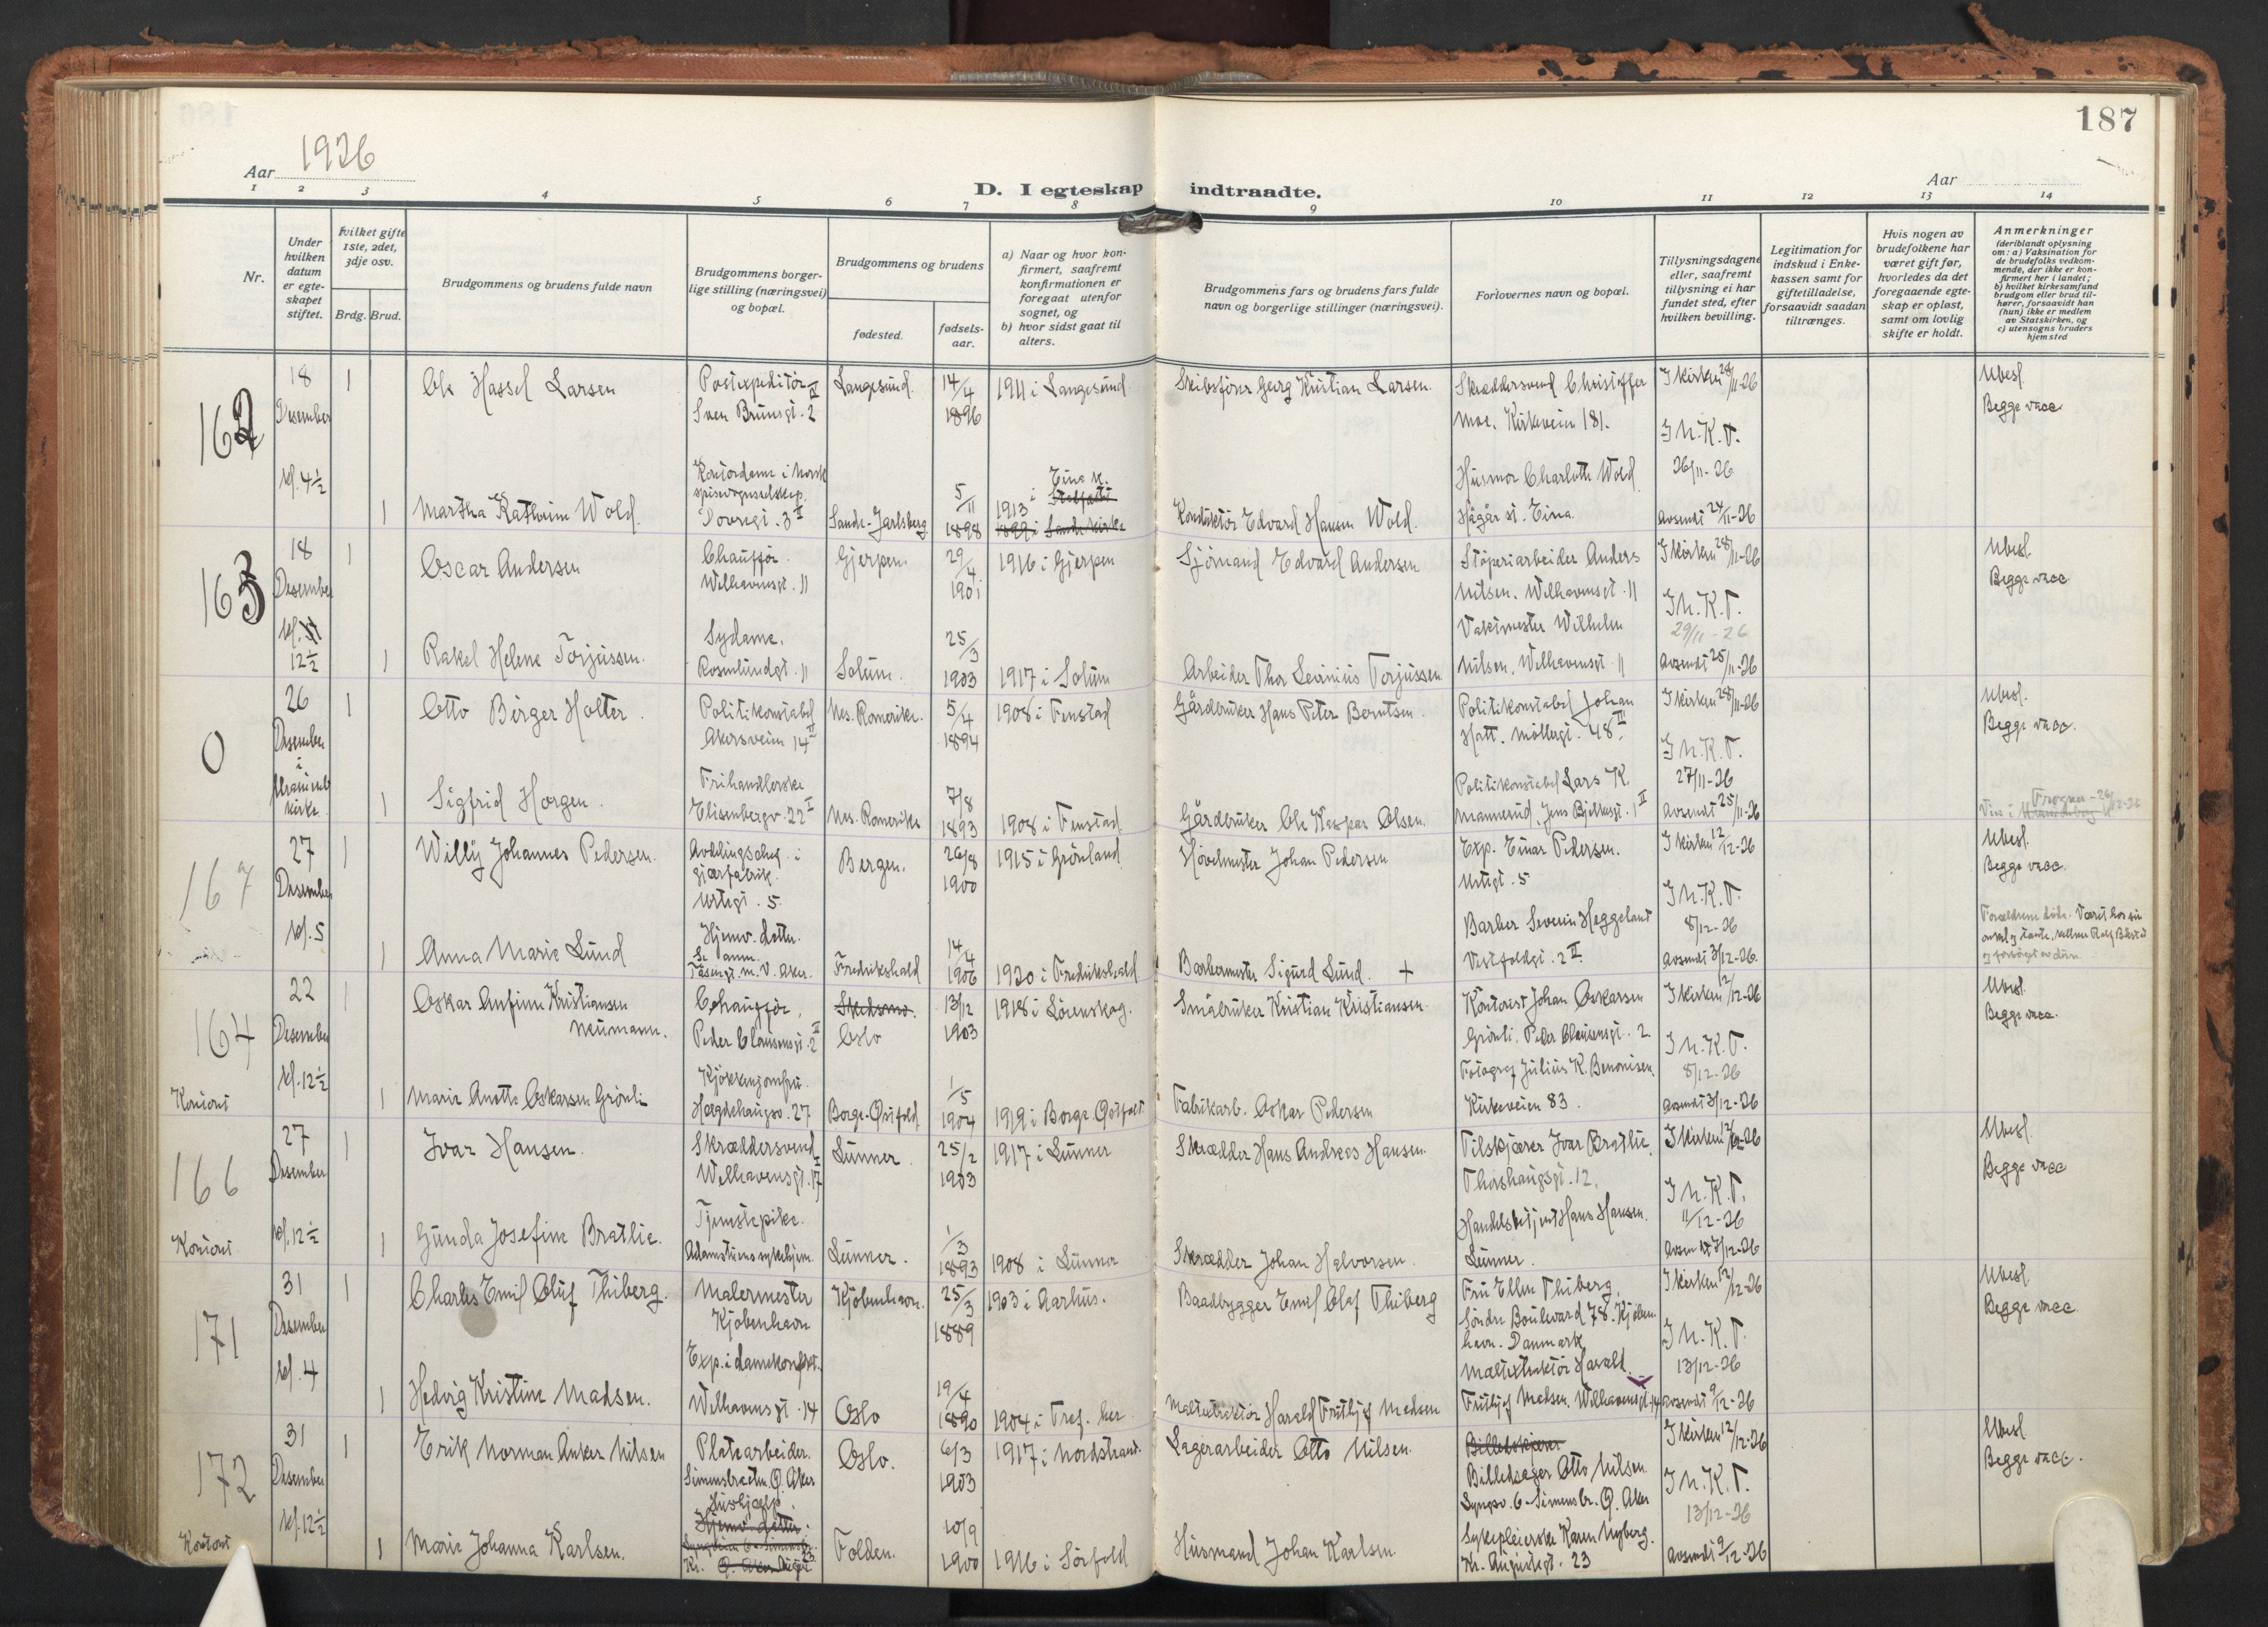 187
Aar 1926
Aar
D. I egteskap indtraadte.
1 2 3 4 5 6 7 8 9 10 11 12 13 14
Nr.
Under hvilken datum er egteskapet stiftet.
hvilket gifte 1ste, 2det, 3dje osv.
Brdg. Brud.
Brudgommens og brudens fulde navn
Brudgommens borgerlige stilling (næringsvei) og bopæl.
Brudgommens og brudens
fødested.
fødselsaar.
a) Naar og hvor konfirmert, saafremt konfirmationen er foregaat utenfor sognet, og
b) hvor sidst gaat til alters.
Brudgommens fars og brudens fars fulde navn og borgerlige stillinger (næringsvei).
Forlovernes navn og bopæl.
Tillysningsdagene eller, saafremt tillysning ei har fundet sted, efter hvilken bevilling.
Legitimation for indskud i Enkekassen samt for giftetilladelse, forsaavidt saadan tiltrænges.
Hvis nogen av brudefolkene har været gift før, hvorledes da det foregaaende egteskap er opløst, samt om lovlig skifte er holdt.
Anmerkninger
(deriblandt oplysning om: a) Vaksination for de brudefolks vedkommende, der ikke er konfirmert her i landet; b) hvilket kirkesamfund brudgom eller brud tilhører, forsaavidt han (hun) ikke er medlem av Statskirken, og c) utensogns bruders hjemsted
162
18 Desember kl. 4½
1 Ole Hassel Larsen
Postexpeditør Sven Brunsgt. 2 IV
Langesund. 14/4 1896
1911 i Langesund
Skibsfører Georg Kristian Larsen.
Skræddersvend Christoffer Moe. Kirkeveien 181.
I kirken 28/11-26
I N.K.T. 26/11-26
Ubesl. Begge vacc.
1 Martha Kathrine Wold.
Kontordame i Norsk spisevognselskap. Dovregt. 3 II
Sande-Jarlsberg 5/11 1898
1913 i Eina k.
Konduktør Edvard Hansen Wold.
Husmor Charlotte Wold Hågår st. Eina
Avsendt 24/11-26
163
18 Desember kl. 12½
1 Oscar Andersen
Chauffør. Welhavensgt. 11
Gjerpen. 29/4 1901
1916 i Gjerpen
Sjømand Edvard Andersen
Støperiarbeider Anders Nilsen. Welhavensgt. 11
I kirken 28/11-26
I N.K.T. 29/11-26
Ubesl. Begge vacc
1 Rakel Helene Torjussen.
Sydame. Rosenlundgt. 11
Solum. 25/3 1903
1917 i Solum
Arbeider Thor Severinius Torjussen
Vaktmester Wilhelm Nilsen, Welhavensgt. 11
Avsendt 25/11-26
0
26 Desember i kirke.
1 Otto Birger Holter.
Politikonstabel Akersveien 14 II
Nes. Romerike. 5/4 1894
1908 i Fenstad
Gårdbruker Hans Peter Berntsen.
Politikonstabel Johan Hatt. Møllergt. 48 III
I kirken 28/11-26
I N.K.T. 27/11-26
Ubesl. Begge vacc.
1 Sigfrid Horgen.
Frihandlerske Elisenbergv. 22 I
Nes. Romerike 7/8 1893
1908 i Fenstad.
Gårdbruker Ole Kaspar Olsen.
Politikonstabel Lars K. Mannerud, Jens Bjelkesgt. 1 II
Avsendt 25/11-26
Frogner - 26/12-26
167
27 Desember kl. 5
1 Willy Johannes Pedersen.
Avdelingschef i gjærfabrik. Urtegt. 5.
Bergen. 26/8 1900
1915 i Grønland
Høvelmester Johan Pedersen
Exp. Einar Pedersen. Urtegt. 5
I kirken 12/12-26
I N.K.T. 8/12-26
Ubesl. Begge vacc.
1 Anna Marie Lund
Hjemv. datter. Tåsengt. m. V. Aker.
Fredrikshald 14/4 1906
1920 i Fredrikshald
Barbermester Sigurd Lund. +
Barber Severin Heggeland Vestfoldgt. 2 II.
Avsendt 3/12-26.
164
22 Desember kl. 12½
Kontoret
1 Oskar Anfinn Kristiansen Neumann.
Chauffør. Peder Clausensgt. 2 II
Skedsmo. Oslo 13/12 1903
1918 i Lørenskog.
Småbruker Kristian Kristiansen.
Kontorist Johan Oskarsen Grønli, Peder Clausensgt. 2
I kirken 12/12-26
I N.K.T. 8/12-26
Ubesl. Begge vacc.
1 Marie Anette Oskarsen Grønli
Kjøkkenjomfru. Hægdehaugsv. 27
Borge-Østfold 1/5 1904
1919 i Borge Østfold
Fabrikarb. Oskar Pedersen
Fotograf Julius K. Benonisen. Kirkeveien 83.
Avsendt 3/12-26
166
27 Desember kl. 12½
Kontoret
1 Ivar Hansen.
Skræddersvend Welhavensgt. 17 I
Lunner. 25/2 1903
1917 i Lunner
Skrædder Hans Andreas Hansen.
Tilskjærer Ivar Bratlie. Thorshaugsgt. 12.
I kirken 12/12-26
I N.K.T. 11/12-26
Ubesl. Begge vacc
1 Gunda Josefine Bratlie.
Tjenstepike. Adamstuens sykehjem.
Lunner. 1/3 1893
1908 i Lunner
Skrædder Johan Halvorsen.
Handelsbetjent Hans Hansen. Lunner.
171
31 Desember kl. 4
1 Charles Emil Oluf Thiberg.
Malermester Kjøbenhavn
Kjøbenhavn. 25/3 1889
1903 i Aarhus.
Baadbygger Emil Olaf Thiberg
Fru Ellen Thiberg, Søndre Boulevard 78. Kjøbenhavn. Danmark
I kirken 12/12-26
I N.K.T. 13/12-26
Ubesl. Begge vacc.
1 Hedvig Kristine Madsen.
Exp. i damekonfekt. Welhavensgt. 14
Oslo 19/4 1890
1904 i Tref. her.
Maltextraktør Harald Frithjof Madsen
Maltextraktør Harald Frithjof Madsen. Welhavensgt. 14
Avsendt 9/12-26
172
31 Desember kl. 12½
Kontoret
1 Erik Norman Anker Nilsen
Platearbeider. Simensbråten Ø. Aker
Oslo. 6/3 1903
1917 i Nordstrand.
Lagerarbeider Otto Nilsen.
Billedskjærer
Otto Nilsen Lyngsv. 6 - Simensbr. Ø. Aker
I kirken 12/12-26
I N.K.T. 13/12-26
Ubesl Begge vacc.
1 Marie Johanna Karlsen.
Hushjælp. Hjemv. datter.
Folden. 10/9 1900
1916 i Sørfold
Husmand Johan Karlsen
Sykepleierske Karen Nyberg. Kr. Augustsgt. 23
Avsendt 9/12-26